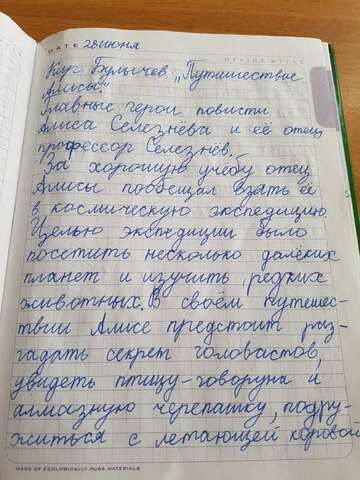 DATE 28 июня
OFFICE STYLE
Кир Булычев „Путишествие
Алисы."
Главные герои повисти
Алиса Селезнёва и её отец,
профессор Селезнёв.
За хорошую учёбу отец
Алисы пообещал взять её
в космическую экспедицию.
Целью экспедиции было
посетить несколько далёких
планет и изучить редких
животных. В своём путешес-
твии Алисе предстоит раз-
гадать секрет головастов,
увидеть птицу-говоруна и
алмазную черепашку, подру-
житься с летающей коровой
MADE OF ECOLOGICALLY PURE MATERIALS